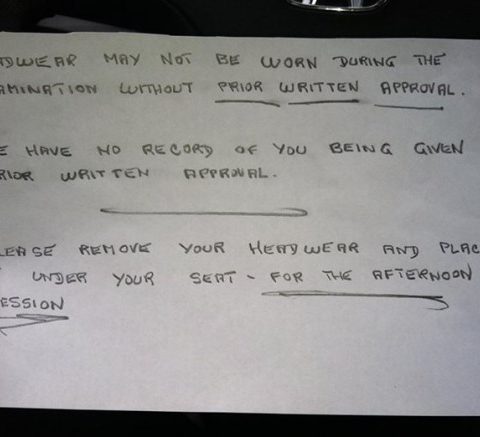 DWEAR MAY NOT BE WORN DURING THE
AMINATION WITHOUT PRIOR WRITTEN APPROVAL.
E HAVE NO RECORD OF YOU BEING GIVEN
RIOR WRITTEN APPROVAL.
LEASE REMOVE YOUR HEADWEAR AND PLAC
UNDER YOUR SEAT - FOR THE AFTERNOON
ESSION